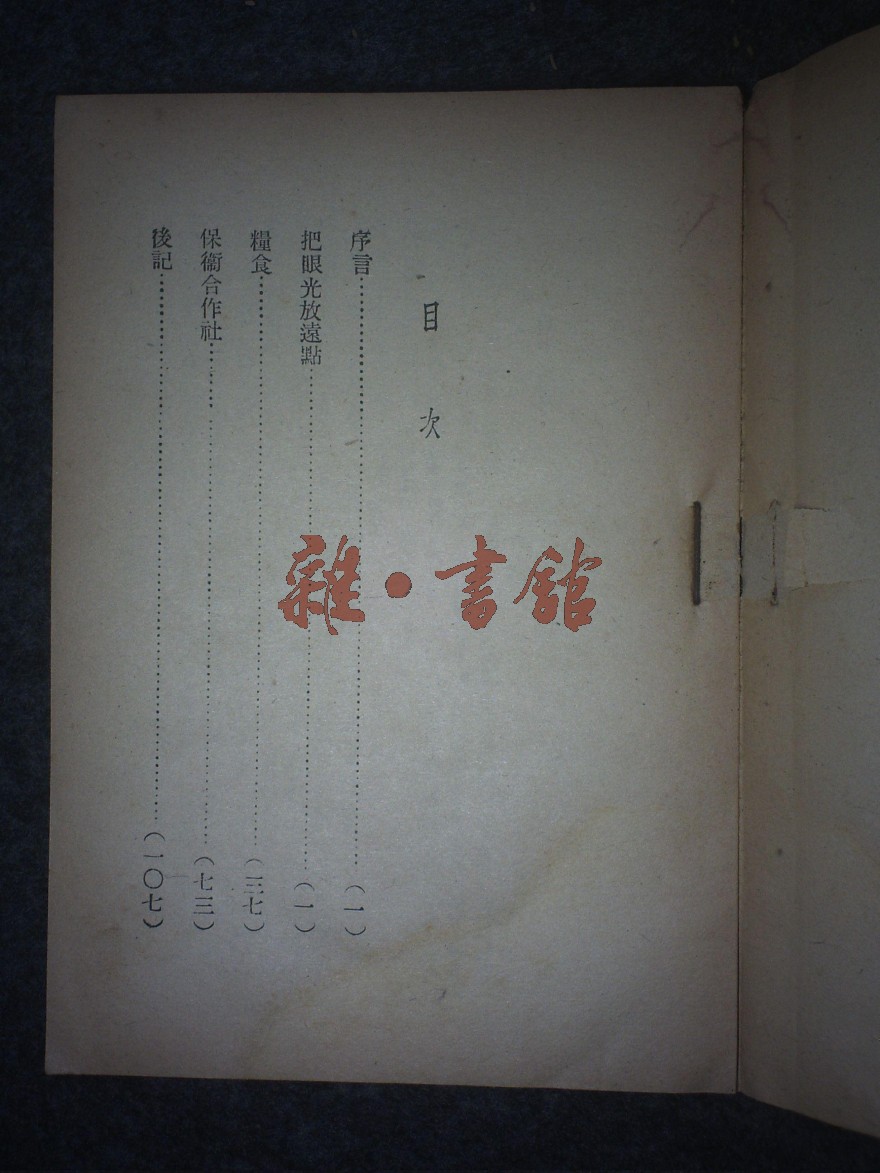 目次
序言……(一)
把眼光放遠點……(一)
糧食……(三七)
保衞合作社……(七三)
後記……(一〇七)
雜·書館